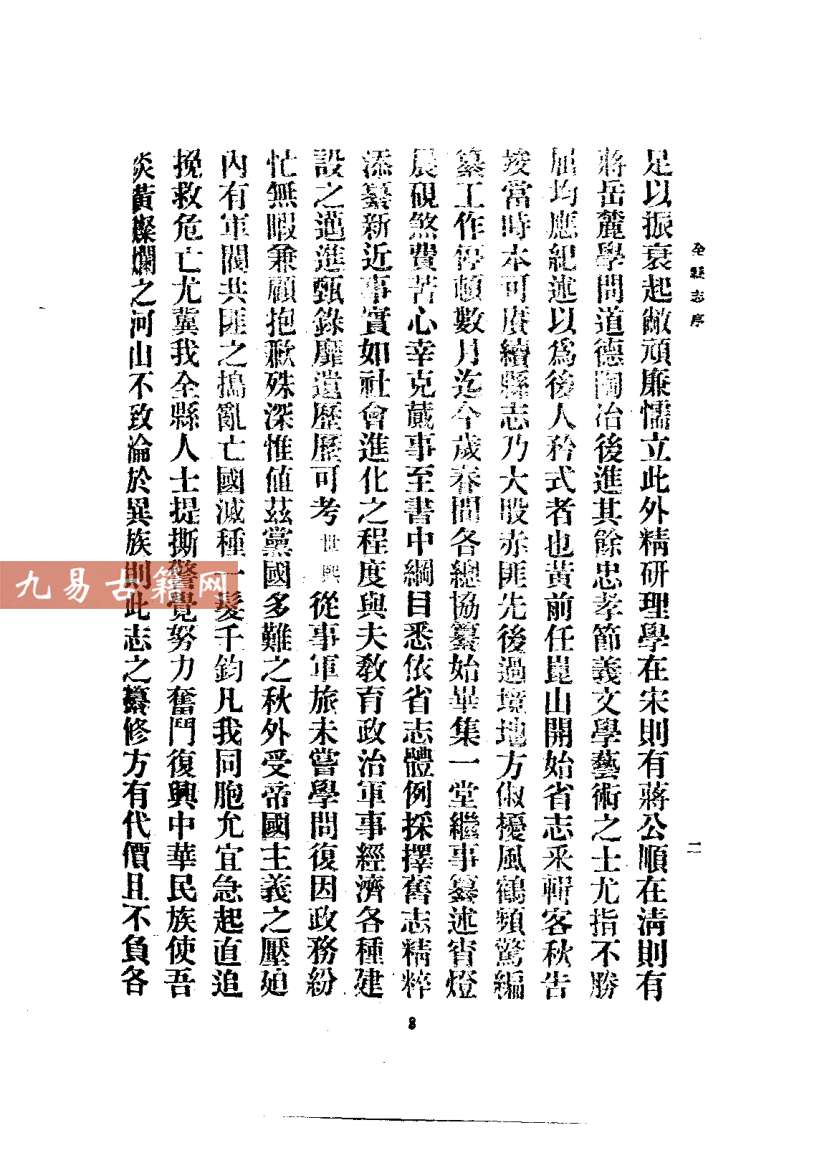 全縣志序
二
足以振衰起敝頑廉懦立此外精研理學在宋則有蔣公順在淸則有
蔣岳麓學問道德陶冶後進其餘忠孝節義文學藝術之士尤指不勝
屈均應紀述以爲後人矜式者也黃前任崑山開始省志釆輯客秋告
竣當時本可賡續縣志乃大股赤匪先後過境地方俶擾風鶴頻驚編
纂工作停頓數月迄今歲春間各總協纂始畢集一堂繼事纂述宵燈
晨硯煞費苦心幸克蕆事至書中綱目悉依省志體例採擇舊志精粹
添纂新近事實如社會進化之程度與夫敎育政治軍事經濟各種建
設之邁進甄錄靡遺歷歷可考世熙從事軍旅未嘗學問復因政務紛
忙無暇兼顧抱歉殊深惟値茲黨國多難之秋外受帝國主義之壓廹
內有軍閥共匪之搗亂亡國滅種一髮千鈞凡我同胞允宜急起直追
挽救危亡尤冀我全縣人士提撕警覺努力奮鬥復興中華民族使吾
炎黃燦爛之河山不致淪於異族則此志之纂修方有代價且不負各
8
九易古籍网